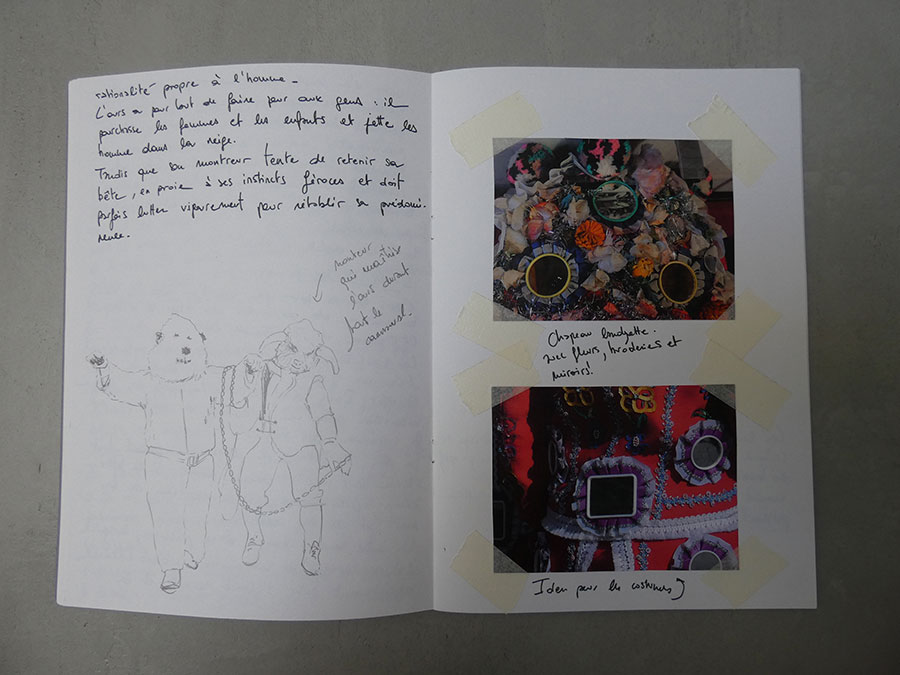 rationalité propre à l'homme -
L'ours a pour but de faire peur aux gens : il
pourchasse les femmes et les enfants et jette les
homme dans la neige.
Tandis que son montreur tente de retenir sa
bête, en proie à ses instincts féroces et doit
parfois lutter vigoureusement pour rétablir sa prédomi-
nence.
monteur
qui maîtrise
l'ours durant
tout le
carnaval.
Chapeau landzette.
avec fleurs, broderies et
miroirs!
Idem pour les costumes